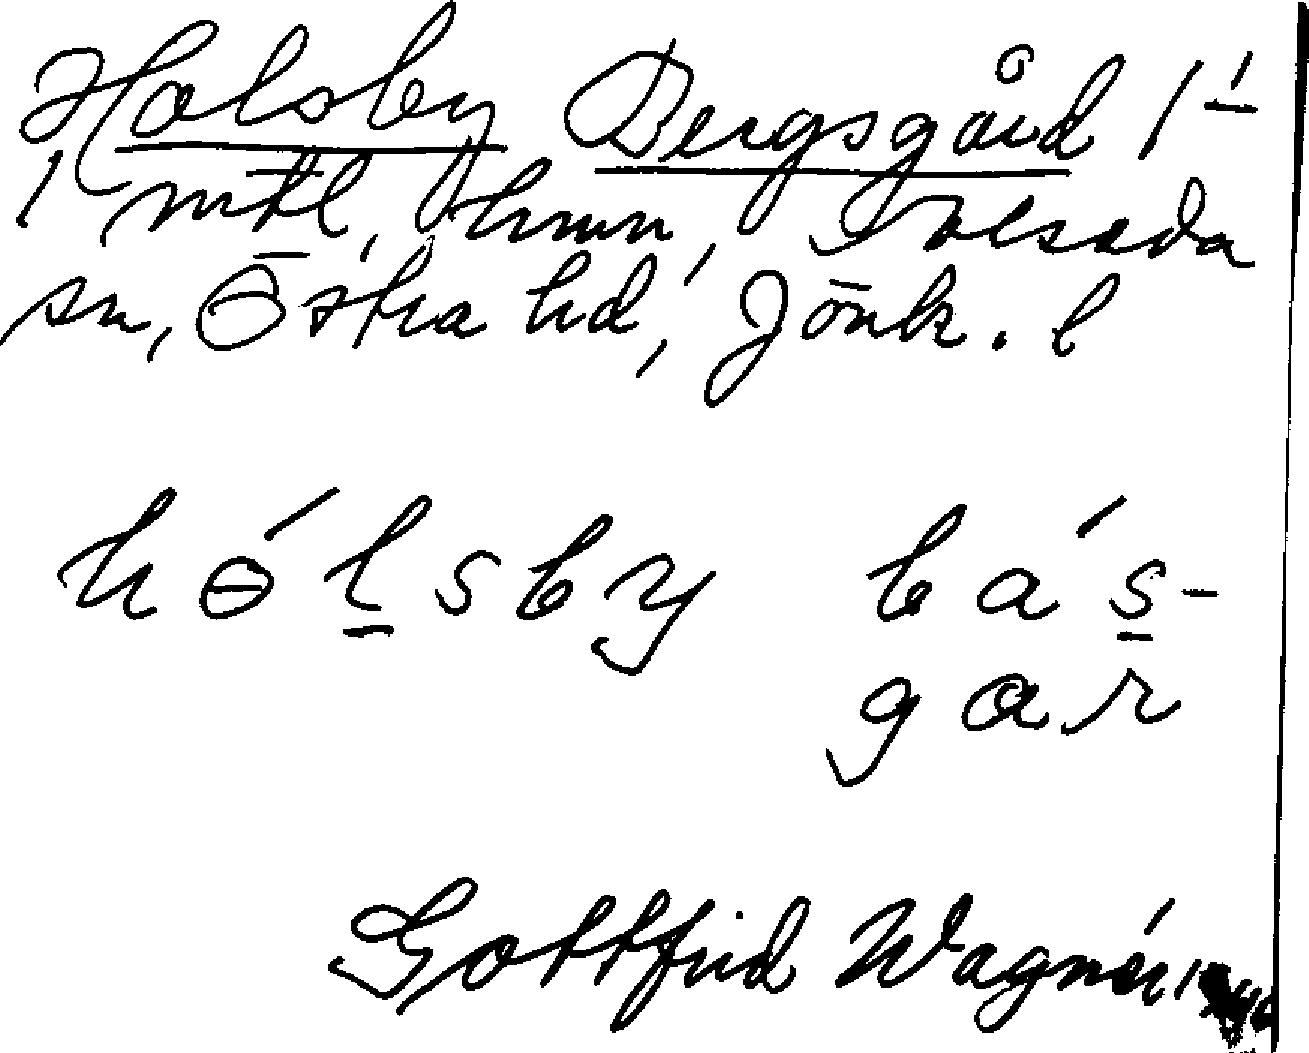 Holsby Bergsgård 1-1
1 mtl, hmn, Alseda
sn, Östra hd, Jönk. l
hɵ́lsby bás-
gar
Gottfrid Wagnér